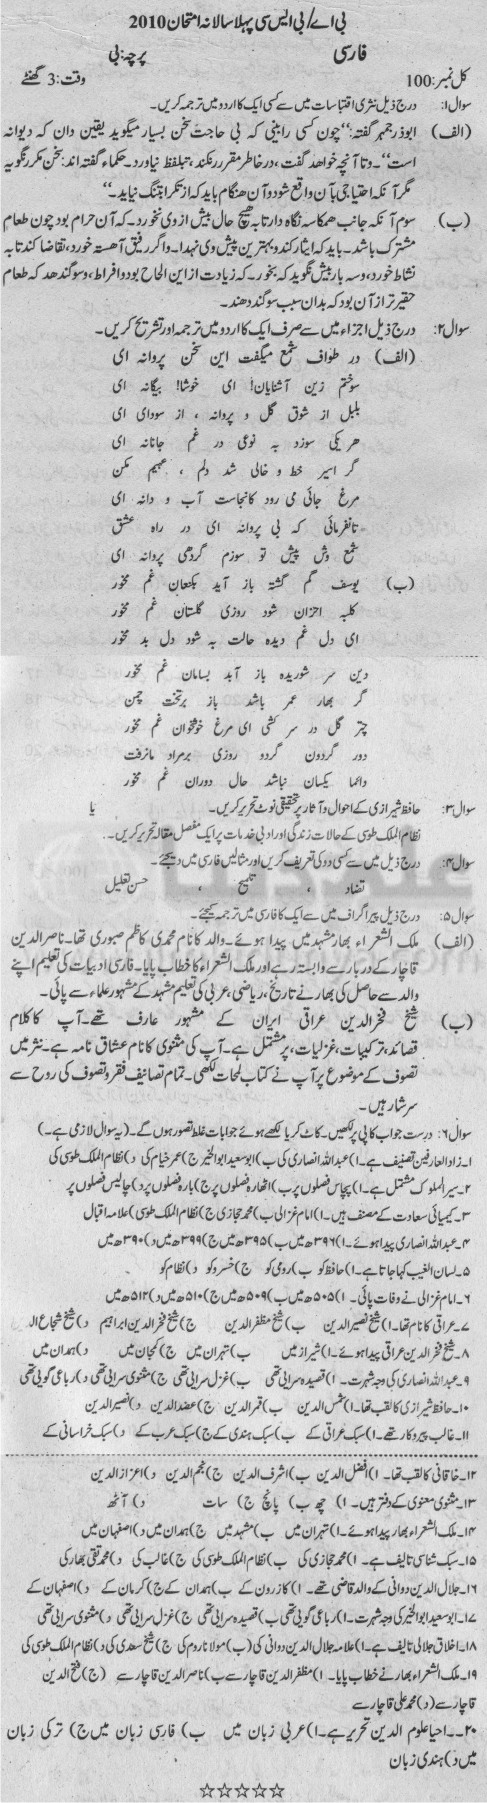 بی اے/بی ایس سی پہلا سالانہ امتحان 2010
فارسی پرچہ: بی
کل نمبر: 100 وقت: 3 گھنٹے
سوال۱: درج ذیل نثری اقتباسات میں سے کسی ایک کا اردو میں ترجمہ کریں۔
(الف) ابوذرجمہر گفتہ: ”چون کسی رابینی کہ بی حاجت سخن بسیار میگوید یقین دان کہ دیوانہ
است“۔ وتا آنچہ خواھد گفت، در خاطر مقرر نکند، بتلفظ نیاورد۔ حکماء گفتہ اند: سخن مکرر نگوید
مگر آنکہ احتیاجی بآن واقع شود و آن ھنگام باید کہ از تکرار تنگ نیاید۔“
(ب) سوم آنکہ جانب ھمکاسہ نگاہ دارد تا بہ ھیچ حال بیش از وی نخورد۔ کہ آن حرام بود چون طعام
مشترک باشد۔ باید کہ ایثار کند و بہترین پیش وی نہد۔ واگر رفیق آھستہ خورد، تقاضا کند تا بہ
نشاط خورد، وسہ بار بیش نگوید کہ بخور۔ کہ زیادت از این الحاح بود وافراط، وسوگند ھد کہ طعام
حقیر تر از آن بود کہ بدان سبب سوگند دھند۔
سوال۲: درج ذیل اجزاء میں سے صرف ایک کا اردو میں ترجمہ اور تشریح کریں۔
(الف) در طواف شمع میگفت این سخن پروانہ ای
سوختم زین آشنایان! ای خوشا! بیگانہ ای
بلبل از شوق گل و پروانہ، از سودای ای
ھریکی سوزد بہ نوعی در غم جانانہ ای
گر اسیر خط و خالی شد دلم، عیبم مکن
مرغ جائی می رود کانجاست آب و دانہ ای
تانفرمائی کہ بی پروانہ ای در راہ عشق
شمع وش پیش تو سوزم گردھی پروانہ ای
(ب) یوسف گم گشتہ باز آید بکنعان غم مخور
کلبہ احزان شود روزی گلستان غم مخور
ای دل غم دیدہ حالت بہ شود دل بد مخور
دین سر شوریدہ باز آید بسامان غم مخور
گر بھار عمر باشد باز برتخت چمن
چتر گل در سر کشی ای مرغ خوشخوان غم مخور
دور گردون گردو روزی برمراد مانرفت
دائما یکسان نباشد حال دوران غم مخور
سوال۳: حافظ شیرازی کے احوال و آثار پر تحقیقی نوٹ تحریر کریں۔ یا
نظام الملک طوسی کے حالات زندگی اور ادبی خدمات پر ایک مفصل مقالہ تحریر کریں۔
سوال۴: درج ذیل میں سے کسی دو کی تعریف کریں اور مثالیں فارسی میں دیجئے۔
تضاد، تلمیح، حسن تعلیل
سوال۵: درج ذیل پیراگراف میں سے ایک کا فارسی میں ترجمہ کیجئے۔
(الف) ملک الشعراء بھار مشہد میں پیدا ہوئے۔ والد کا نام محمدی کاظم صبوری تھا۔ ناصر الدین
قاچار کے دربار سے وابستہ رہے اور ملک الشعراء کا خطاب پایا۔ فارسی ادبیات کی تعلیم اپنے
والد سے حاصل کی بھار نے تاریخ، ریاضی، عربی کی تعلیم مشہد کے مشہور علماء سے پائی۔
(ب) شیخ فخرالدین عراقی ایران کے مشہور عارف تھے۔ آپ کا کلام
قصائد، ترکیبات، غزلیات، پر مشتمل ہے۔ آپ کی مثنوی کا نام عشاق نامہ ہے۔ نثر میں
تصوف کے موضوع پر آپ نے کتاب لمعات لکھی۔ تمام تصانیف فقر و تصوف کی روح سے
سرشار ہیں۔
سوال۶: درست جواب کاپی پر لکھیں۔ کاٹ کر یا لکھے ہوئے جوابات غلط تصور ہوں گے۔ (یہ سوال لازمی ہے)۔
۱۔ زاد العارفین تصنیف ہے۔ ا) عبداللہ انصاری کی ب) ابوسعید ابوالخیر ج) عمر خیام کی د) نظام الملک طوسی کی
۲۔ سیر الملوک مشتمل ہے۔ ا) پچاس فصلوں پر ب) اٹھارہ فصلوں پر ج) بارہ فصلوں پر د) چالیس فصلوں پر
۳۔ کیمیائی سعادت کے مصنف ہیں۔ ا) امام غزالی ب) محمد حجازی ج) نظام الملک طوسی) علامہ اقبال
۴۔ عبداللہ انصاری پیدا ہوئے۔ ا) ۳۹۶ھ میں ب) ۳۹۵ھ میں ج) ۳۹۹ھ میں د) ۳۹۰ھ میں
۵۔ لسان الغیب کہا جاتا ہے۔ ا) حافظ کو ب) رومی کو ج) خسرو کو د) نظام کو
۶۔ امام غزالی نے وفات پائی۔ ا) ۵۰۵ھ میں ب) ۵۰۹ھ میں ج) ۵۱۰ھ میں د) ۵۱۲ھ میں
۷۔ عراقی کا نام تھا۔ ا) شیخ نصیر الدین ب) شیخ مظفر الدین ج) شیخ فخرالدین ابراہیم د) شیخ شجاع الد
۸۔ شیخ فخرالدین عراقی پیدا ہوئے۔ ا) شیراز میں ب) تہران میں ج) کمجان میں د) ہمدان میں
۹۔ عبداللہ انصاری کی وجہ شہرت۔ ا) قصیدہ سرایی تھی ب) غزل سرایی تھی ج) مثنوی سرایی تھی د) رباعی گویی تھی
۱۰۔ حافظ شیرازی کا لقب تھا۔ ا) شمس الدین ب) قمر الدین ج) عضد الدین د) نصیر الدین
۱۱۔ غالب پیروکار تھے۔ ا) سبک عراقی کے ب) سبک ہندی کے ج) سبک عرب کے د) سبک خراسانی کے
۱۲۔ خاقانی کا لقب تھا۔ ا) افضل الدین ب) اشرف الدین ج) نجم الدین د) اعزاز الدین
۱۳۔ مثنوی معنوی کے دفتر ہیں۔ ا) چھ ب) پانچ ج) سات د) آٹھ
۱۴۔ ملک الشعراء بھار پیدا ہوئے۔ ا) تہران میں ب) مشہد میں ج) ہمدان میں د) اصفہان میں
۱۵۔ سبک شناسی تالیف ہے۔ ا) محمد حجازی کی ب) نظام الملک طوسی کی ج) غالب کی د) محمد تقی بھار کی
۱۶۔ جلال الدین دوانی کے والد قاضی تھے۔ ا) کازرون کے ب) ہمدان کے ج) کرمان کے د) اصفہان کے
۱۷۔ ابوسعید ابوالخیر کی وجہ شہرت۔ ا) رباعی گویی تھی ب) قصیدہ سرایی تھی ج) غزل سرایی تھی د) مثنوی سرایی تھی
۱۸۔ اخلاق جلالی تالیف ہے۔ ا) علامہ جلال الدین دوانی کی (ب) مولانا روم کی ج) شیخ سعدی کی د) نظام الملک طوسی کی
۱۹۔ ملک الشعراء بھار نے خطاب پایا۔ ا) مظفر الدین قاچار سے ب) ناصر الدین قاچار سے (ج) فتح الدین
قاچار سے (د) محمد علی قاچار سے
۲۰۔۔ احیا علوم الدین تحریر ہے۔ ا) عربی زبان میں ب) فارسی زبان میں ج) ترکی زبان
میں د) ہندی زبان
☆☆☆☆☆